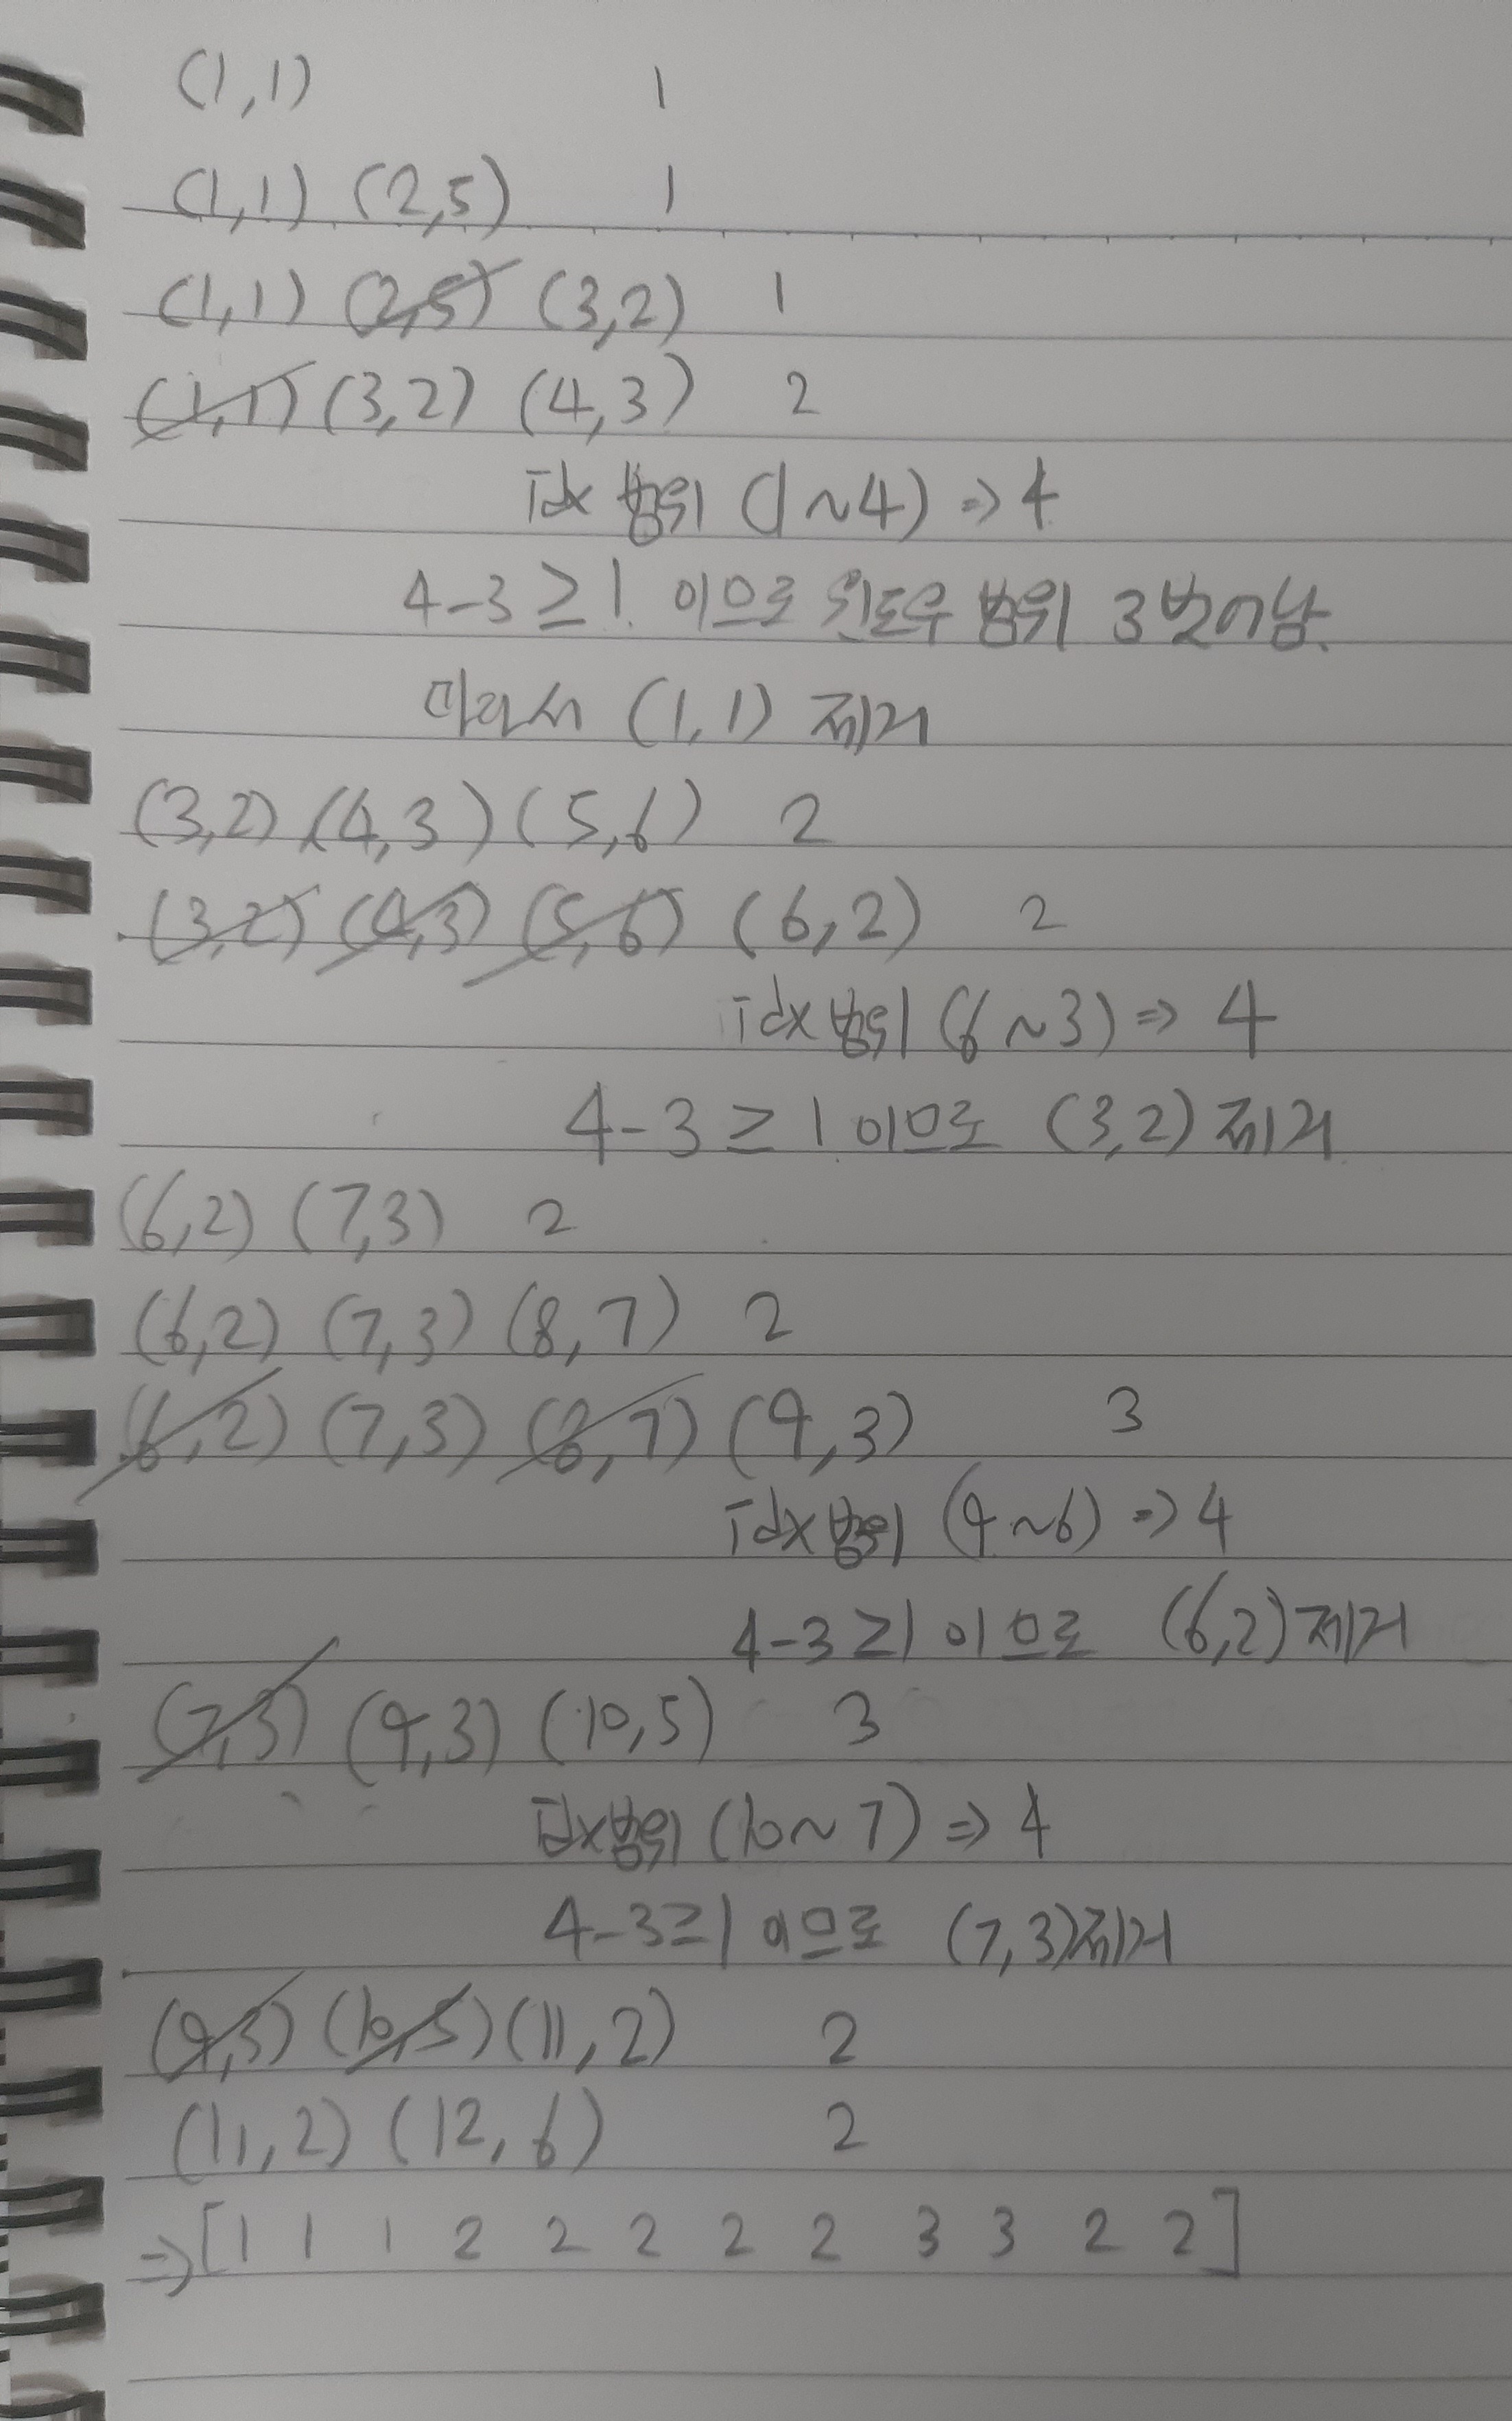 (1,1) 1
(1,1) (2,5) 1
(1,1) (2,5) (3,2) 1
(1,1) (3,2) (4,3) 2
idx 범위 (1~4) => 4
4-3 ≥ 1 이므로 윈도우 범위 3 벗어남.
따라서 (1,1) 제거
(3,2) (4,3) (5,6) 2
(3,2) (4,3) (5,6) (6,2) 2
idx 범위 (6~3) => 4
4-3 ≥ 1 이므로 (3,2) 제거
(6,2) (7,3) 2
(6,2) (7,3) (8,7) 2
(6,2) (7,3) (8,7) (9,3) 3
idx 범위 (9~6) => 4
4-3 ≥ 1 이므로 (6,2) 제거
(7,3) (9,3) (10,5) 3
idx 범위 (10~7) => 4
4-3 ≥ 1 이므로 (7,3) 제거
(9,3) (10,5) (11,2) 2
(11,2) (12,6) 2
=> [1 1 1 2 2 2 2 2 3 3 2 2]